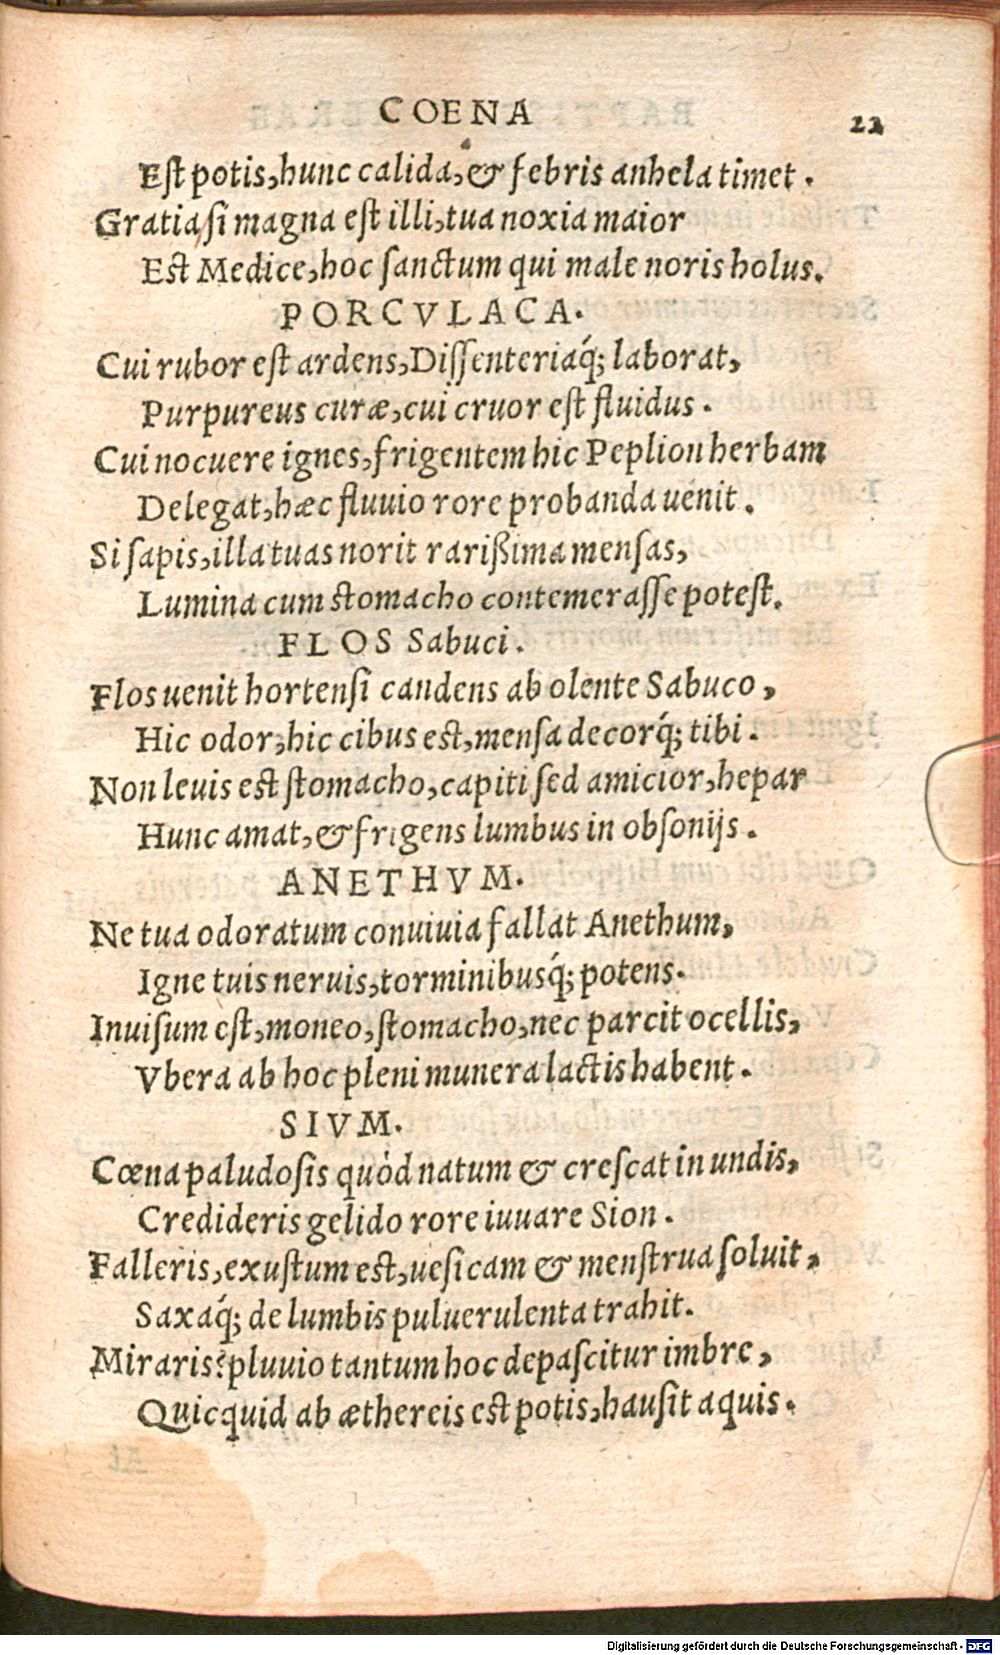 COENA 22
Est potis, hunc calida, & febris anhela timet.
Gratia, si magna est illi, tua noxia maior
Est Medice, hoc sanctum qui male noris holus.
PORCVLACA.
Cui rubor est ardens, Dissenteriaq́; laborat,
Purpureus curæ, cui cruor est fluidus.
Cui nocuere ignes, frigentem hic Peplion herbam
Delegat, hæc fluuio rore probanda uenit.
Si sapis, illa tuas norit rarißima mensas,
Lumina cum stomacho contemerasse potest.
FLOS Sabuci.
Flos uenit hortensi candens ab olente Sabuco,
Hic odor, hic cibus est, mensa decorq́; tibi.
Non leuis est stomacho, capiti sed amicior, hepar
Hunc amat, & frigens lumbus in obsonijs.
ANETHVM.
Ne tua odoratum conuiuia fallat Anethum,
Igne tuis neruis, torminibusq́; potens.
Inuisum est, moneo, stomacho, nec parcit ocellis,
Vbera ab hoc pleni munera lactis habent.
SIVM.
Cœna paludosis quòd natum & crescat in undis,
Credideris gelido rore iuuare Sion.
Falleris, exustum est, uesicam & menstrua soluit,
Saxaq́; de lumbis puluerulenta trahit.
Miraris? pluuio tantum hoc depascitur imbre,
Quicquid ab æthereis est potis, hausit aquis.
Digitalisierung gefördert durch die Deutsche Forschungsgemeinschaft - DFG